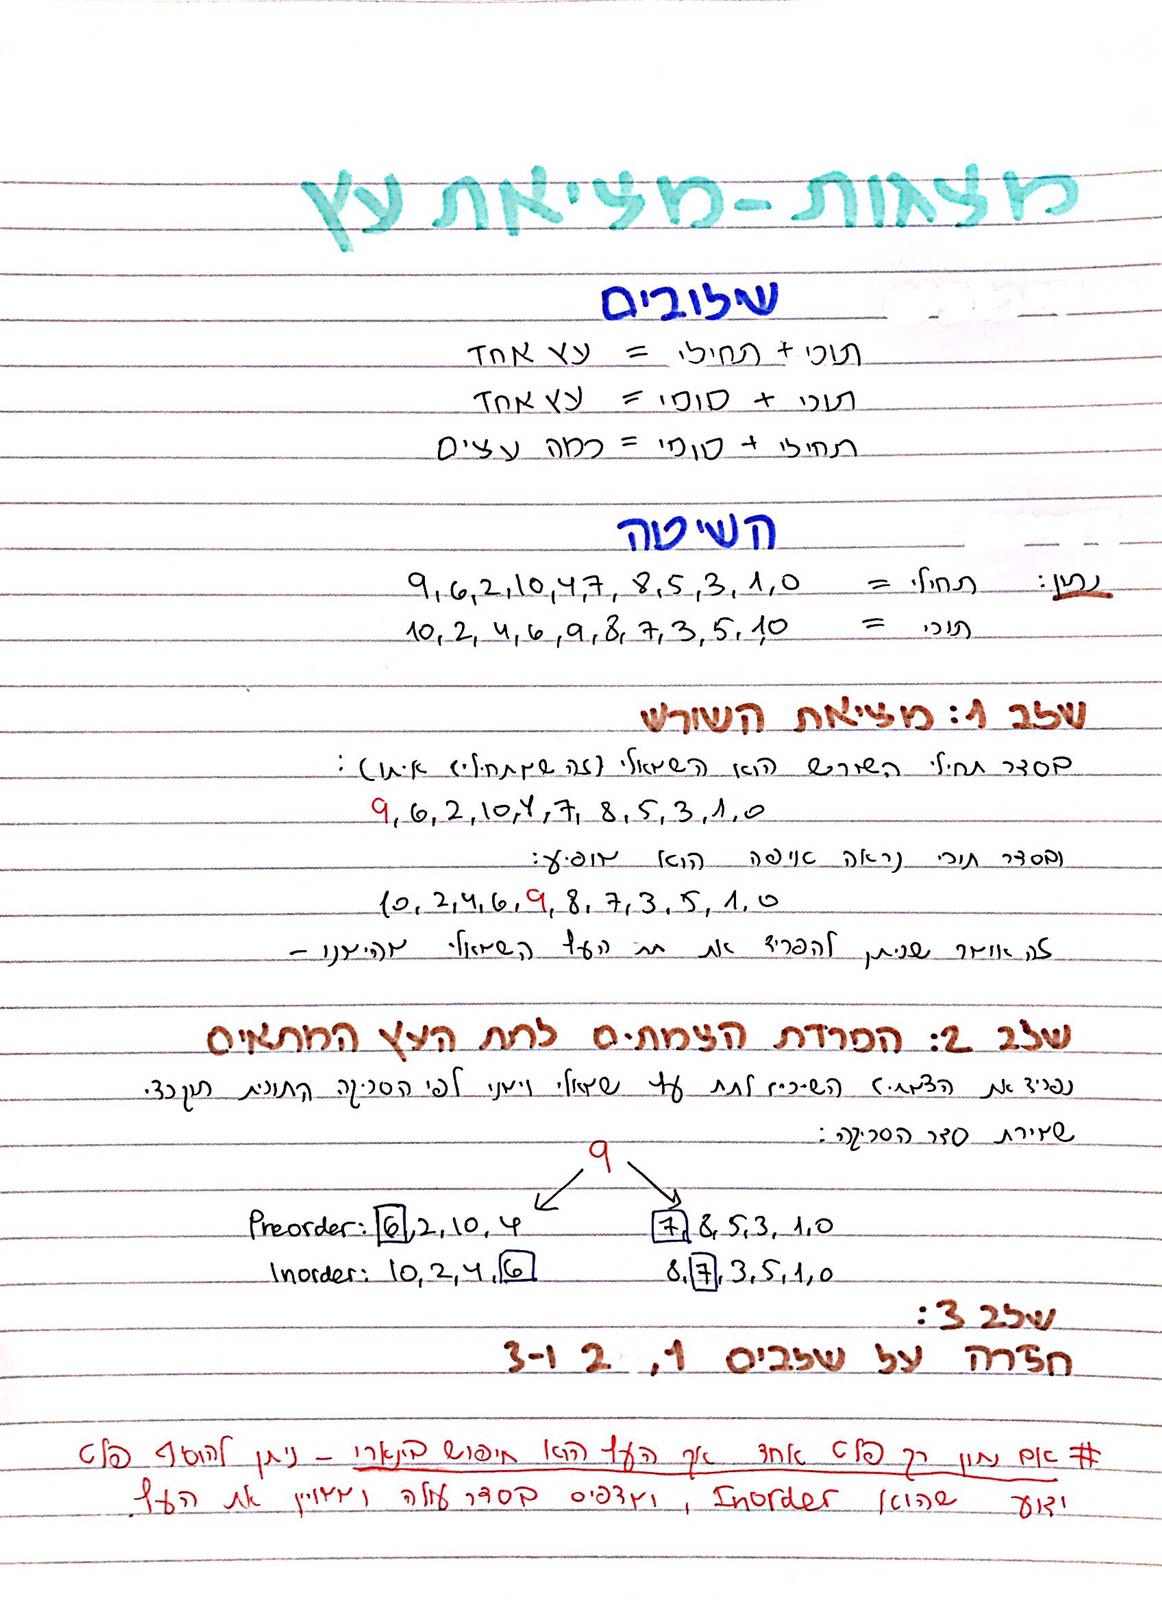 מצגות - מציאת עץ
שילובים
תוכי + תחילי = עץ אחד
תוכי + סופי = עץ אחד
תחילי + סופי = כמה עצים
השיטה
נתון: תחילי = 9,6,2,10,4,7, 8,5,3,1,0
תוכי = 10,2,4,6,9,8,7,3,5,1,0
שלב 1: מציאת השורש
בסדר תחילי השורש הוא השמאלי (זה שמתחילים איתו):
9,6,2,10,4,7, 8,5,3,1,0
ובסדר תוכי נראה איפה הוא מופיע:
10,2,4,6,9,8,7,3,5,1,0
זה אומר שניתן להפריד את תת העץ השמאלי מהימנו -
שלב 2: הפרדת הצמתים לתת העץ המתאים
נפריד את הצמתים השייכים לתת עץ שמאלי וימני לפי הסריקה התוכית תוך כדי
שמירת סדר הסריקה:
9
Preorder: 6,2,10,4 7,8,5,3,1,0
Inorder: 10,2,4,6 8,7,3,5,1,0
שלב 3:
חזרה על שלבים 1, 2 ו-3
# אם נתון רק פלט אחד אך העץ הוא חיפוש בינארי - ניתן להוסיף פלט
ידוע שהוא Inorder, ומדפיס בסדר עולה ומציין את העץ.